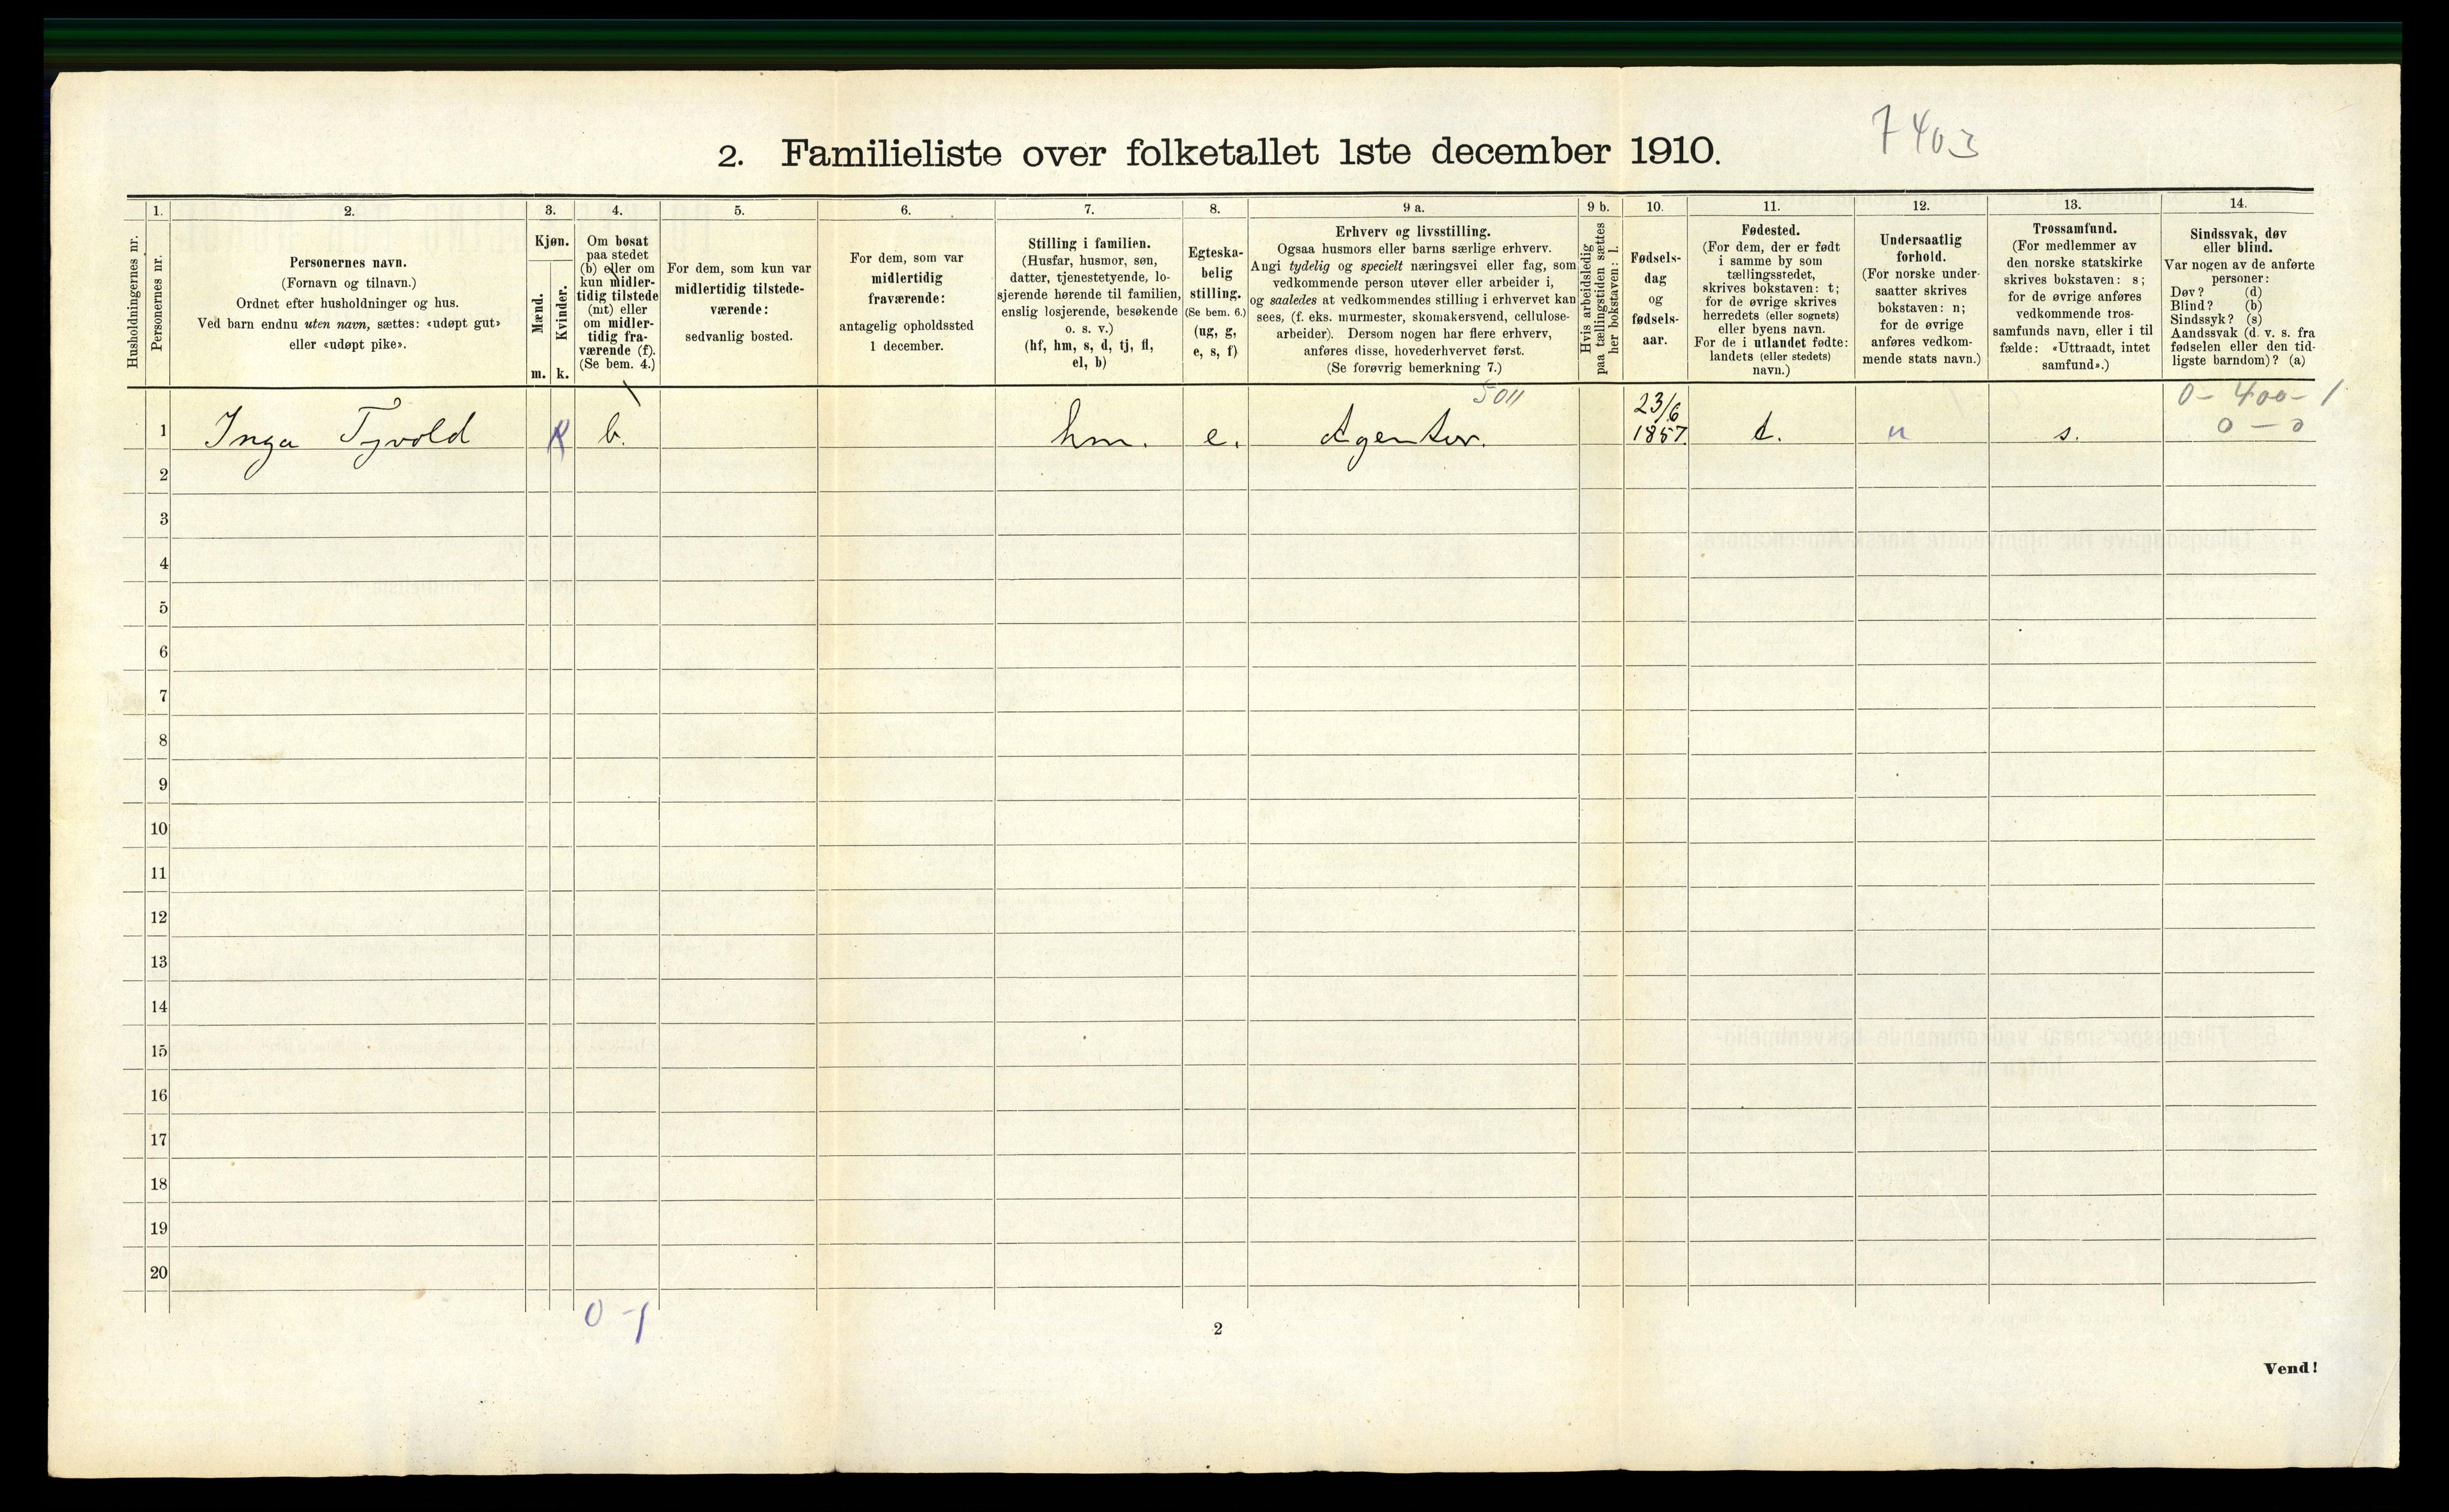 7403
2. Familieliste over folketallet 1ste december 1910.
Husholdningernes nr.
1.
Personernes nr.
2.
Personernes navn.
(Fornavn og tilnavn.)
Ordnet efter husholdninger og hus.
Ved barn endnu uten navn, sættes: «udøpt gut»
eller «udøpt pike».
3.
Kjøn.
Mænd.
Kvinder.
m. k.
4.
Om bosat
paa stedet
(b) eller om
kun midler-
tidig tilstede
(mt) eller
om midler-
tidig fra-
værende (f).
(Se bem. 4.)
5.
For dem, som kun var
midlertidig tilstede-
værende:
sedvanlig bosted.
6.
For dem, som var
midlertidig
fraværende:
antagelig opholdssted
1 december.
7.
Stilling i familien.
(Husfar, husmor, søn,
datter, tjenestetyende, lo-
sjerende hørende til familien,
enslig losjerende, besøkende
o. s. v.)
(hf, hm, s, d, tj, fl,
el, b)
8.
Egteska-
belig
stilling.
(Se bem. 6.)
(ug, g,
e, s, f)
9 a.
Erhverv og livsstilling.
Ogsaa husmors eller barns særlige erhverv.
Angi tydelig og specielt næringsvei eller fag, som
vedkommende person utøver eller arbeider i,
og saaledes at vedkommendes stilling i erhvervet kan
sees, (f. eks. murmester, skomakersvend, cellulose-
arbeider). Dersom nogen har flere erhverv,
anføres disse, hovederhvervet først.
(Se forøvrig bemerkning 7.)
9 b.
Hvis arbeidsledig
paa tællingstiden sættes
her bokstaven: l.
10.
Fødsels-
dag
og
fødsels-
aar.
11.
Fødested.
(For dem, der er født
i samme by som
tællingsstedet,
skrives bokstaven: t;
for de øvrige skrives
herredets (eller sognets)
eller byens navn.
For de i utlandet fødte:
landets (eller stedets)
navn.)
12.
Undersaatlig
forhold.
(For norske under-
saatter skrives
bokstaven: n;
for de øvrige
anføres vedkom-
mende stats navn.)
13.
Trossamfund.
(For medlemmer av
den norske statskirke
skrives bokstaven: s;
for de øvrige anføres
vedkommende tros-
samfunds navn, eller i til-
fælde: «Uttraadt, intet
samfund».)
14.
Sindssvak, døv
eller blind.
Var nogen av de anførte
personer:
Døv? (d)
Blind? (b)
Sindssyk? (s)
Aandssvak (d. v. s. fra
fødselen eller den tid-
ligste barndom)? (a)
5011
0 - 400 - 1
0 - 0
1 Inga Tyvold k b. hm. e. Agentur. 23/6 1857 t. n s.
2
3
4
5
6
7
8
9
10
11
12
13
14
15
16
17
18
19
20
0 - 1
2
Vend!